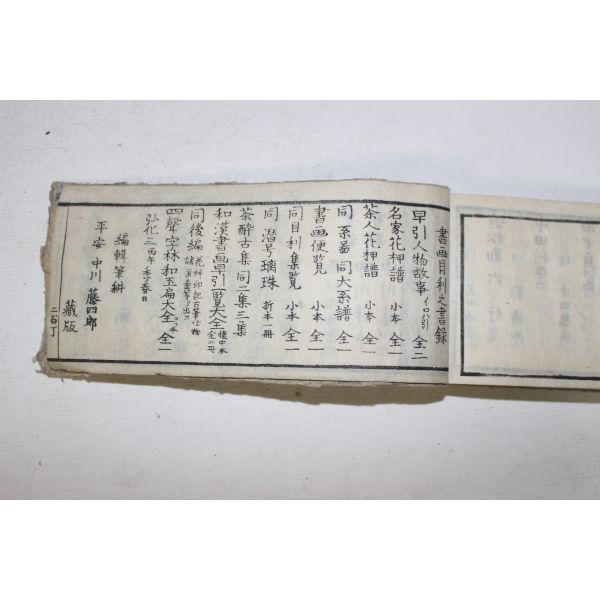 書画目利之書録
早引人物故事 イロハ引 全二
名家花押譜 小本 全一
茶人花押譜 小本 全一
同系図 同大系譜 全一
書画便覧 小本 全一
同目利集覧 小本 全一
同潜号璃珠 折本一冊
茶酔古集 同二集三集
和漢書画早引一覧大全 懐中本 全二冊
同後編 花押印記古筆
四聲字林和玉扁大全 全一
弘化三丙午季春
編輯筆耕
平安 中川藤四郎
藏版
二百丁